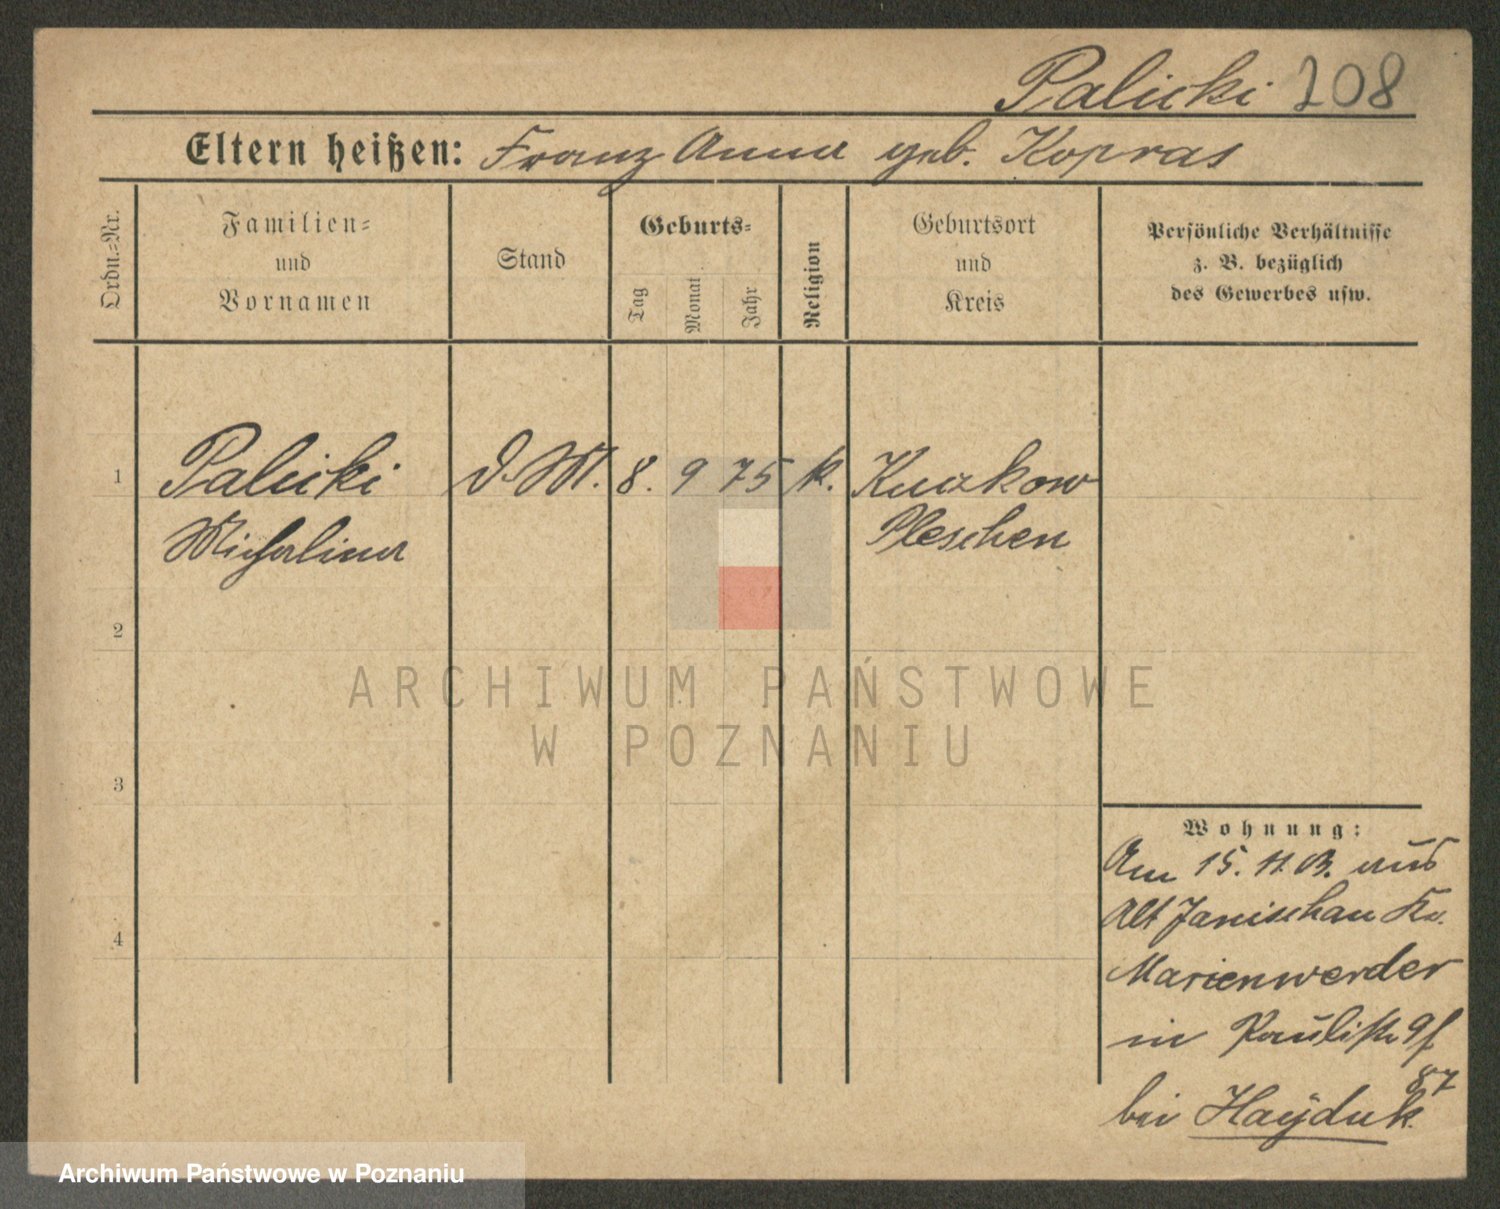 Palicki 208
Eltern heißen: Franz Anna geb. Kopras
Ordn.=Nr.
Familien=
und
Vornamen
Stand
Geburts=
Tag
Monat
Jahr
Religion
Geburtsort
und
Kreis
Persönliche Verhältnisse
z. B. bezüglich
des Gewerbes usw.
1 Palicki D. M. 8. 9 75 k. Kuczkow
Michalina Pleschen
2
3
4
ARCHIWUM PAŃSTWOWE
W POZNANIU
Wohnung:
Am 15. 11. 03. aus
Alt Janischau Kr.
Marienwerder
in Paulistr 9f
87
bei Hayduk.
Archiwum Państwowe w Poznaniu